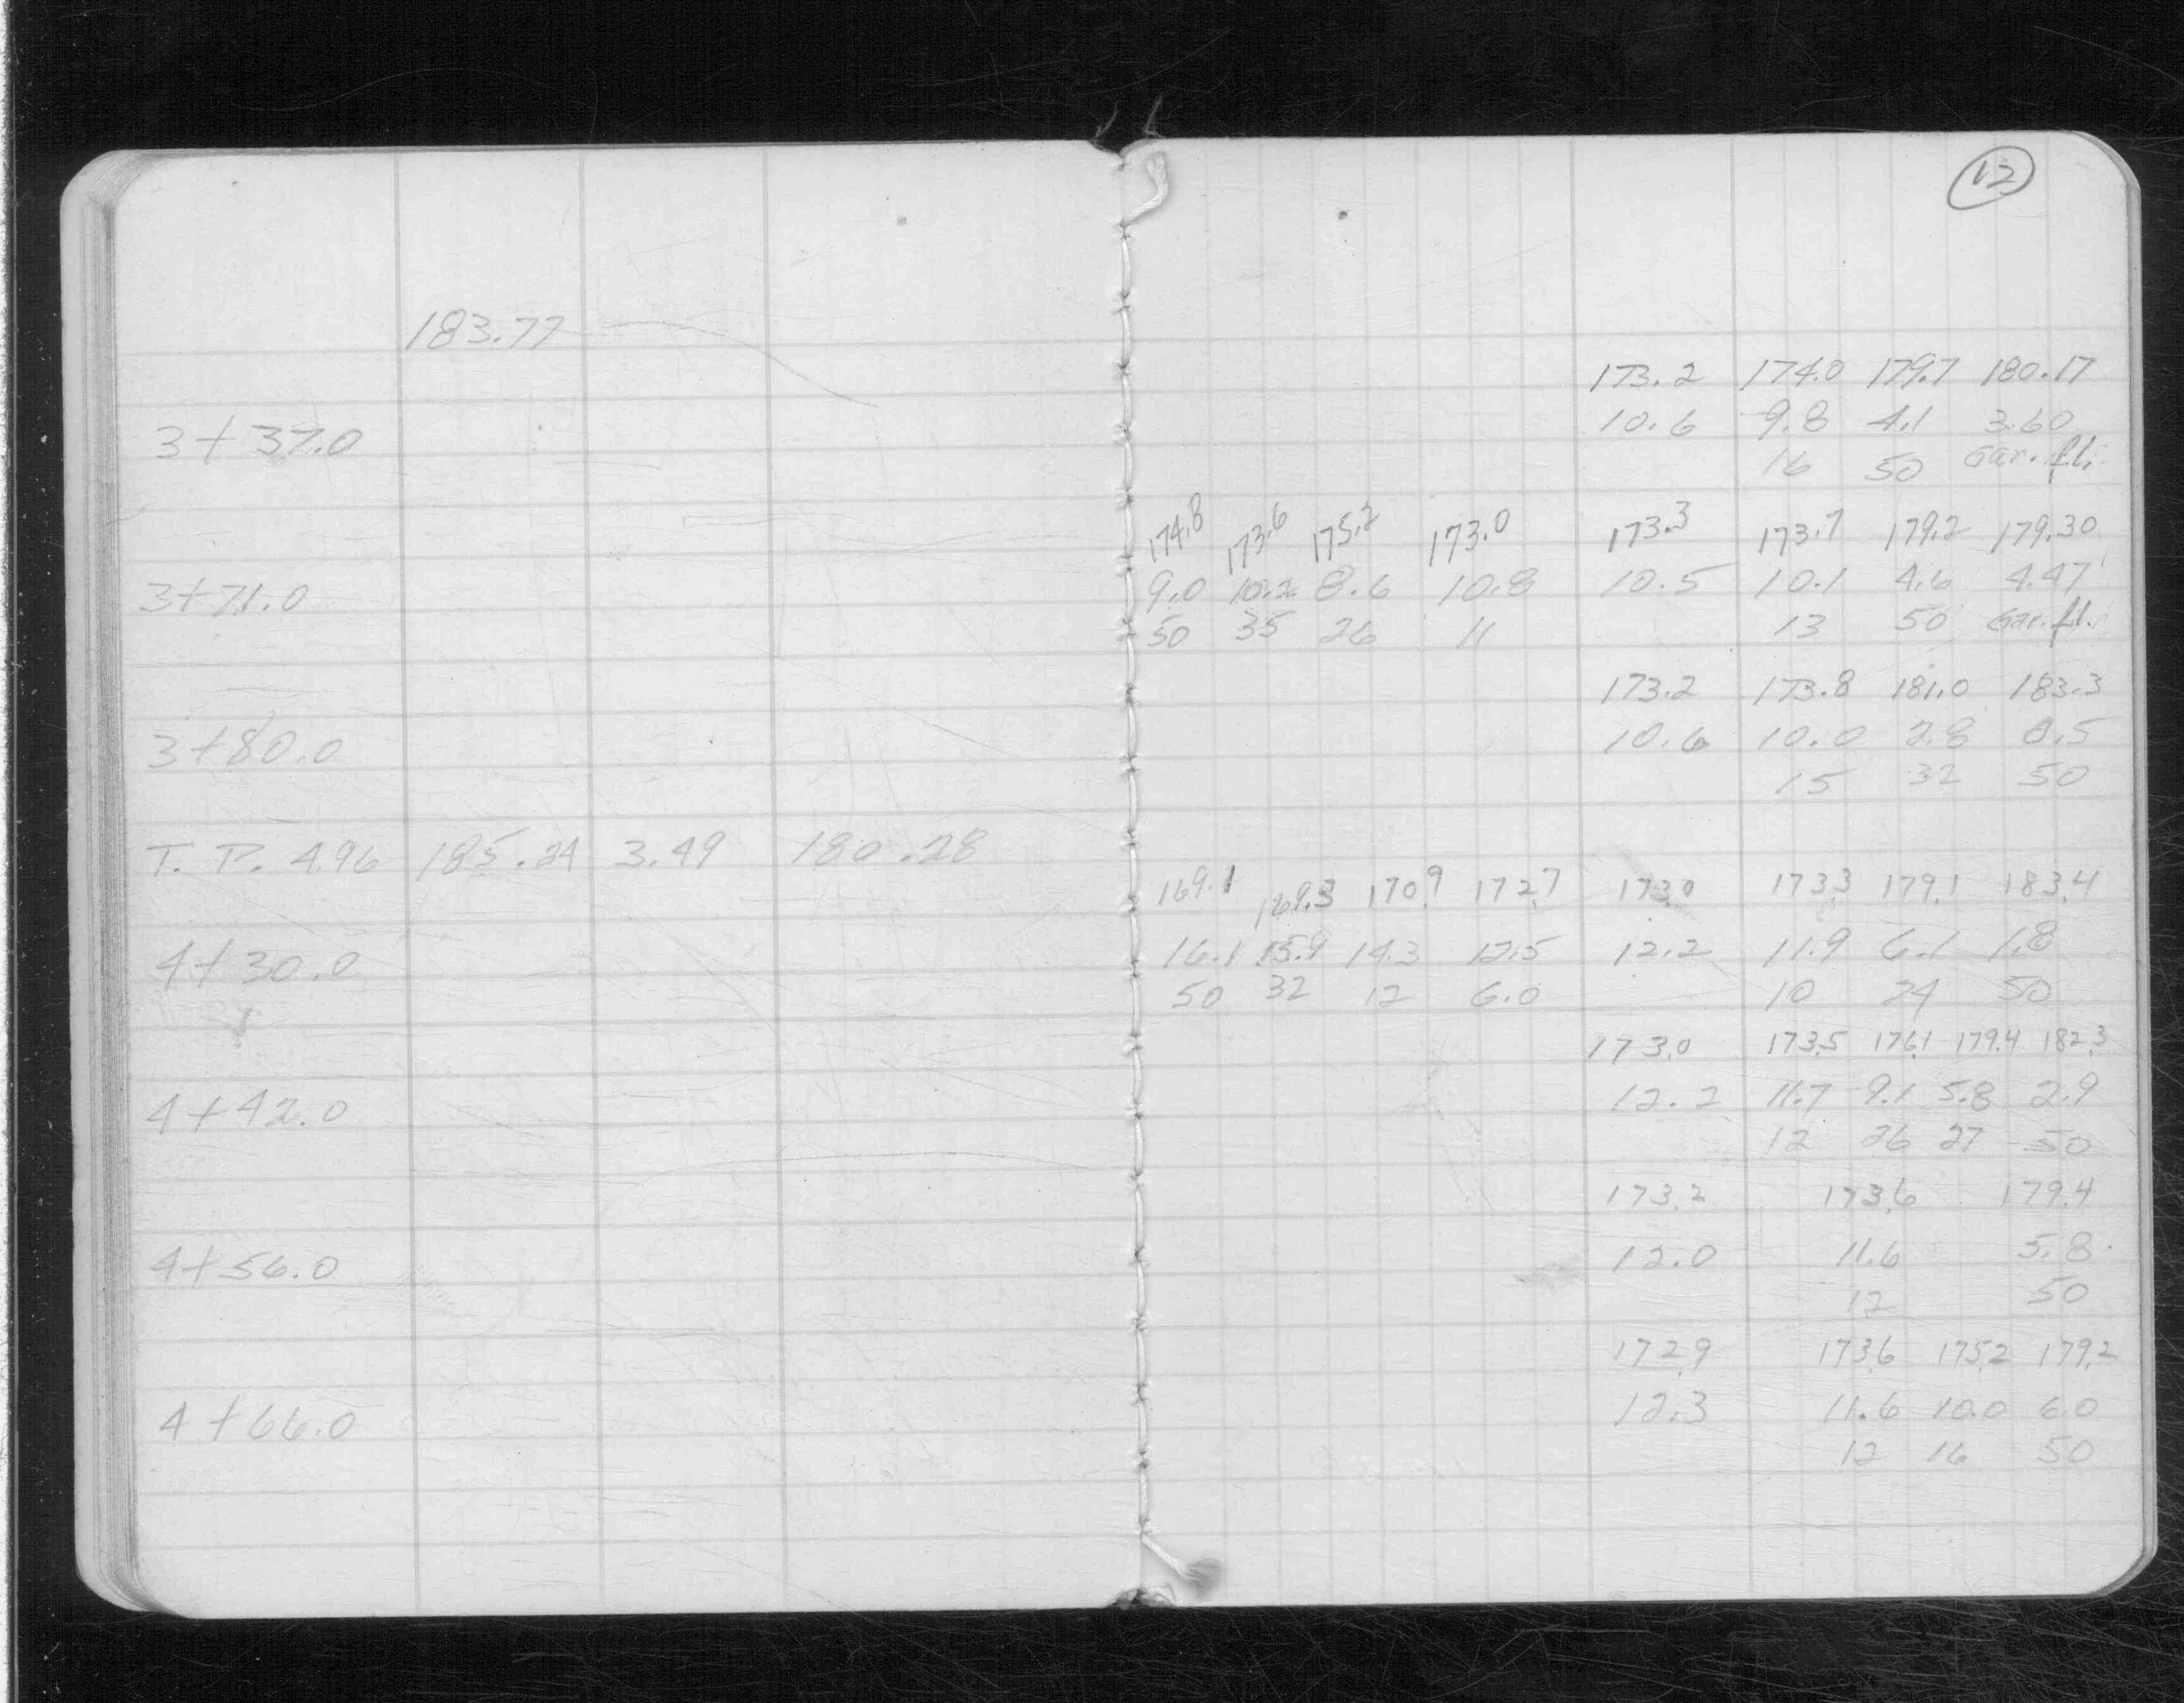 12
183.77
173.2 174.0 179.7 180.17
3+37.0 10.6 9.8 4.1 3.60
16 50 Gar. fl.
174.8 173.6 175.2 173.0 173.3 173.7 179.2 179.30
3+71.0 9.0 10.2 8.6 10.8 10.5 10.1 4.6 4.47
50 35 26 11 13 50 Gar. fl.
173.2 173.8 181.0 183.3
3+80.0 10.6 10.0 2.8 0.5
15 32 50
T. P. 4.96 185.24 3.49 180.28
169.1 169.3 170.9 172.7 173.0 173.3 179.1 183.4
4+30.0 16.1 15.9 14.3 12.5 12.2 11.9 6.1 1.8
50 32 12 6.0 10 24 50
173.0 173.5 176.1 179.4 182.3
4+42.0 12.2 11.7 9.1 5.8 2.9
12 26 27 50
173.2 173.6 179.4
4+56.0 12.0 11.6 5.8
12 50
172.9 173.6 175.2 179.2
4+66.0 12.3 11.6 10.0 6.0
12 16 50